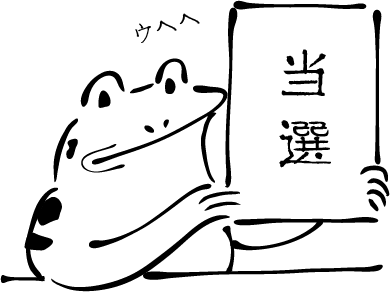 ウヘヘ
当選